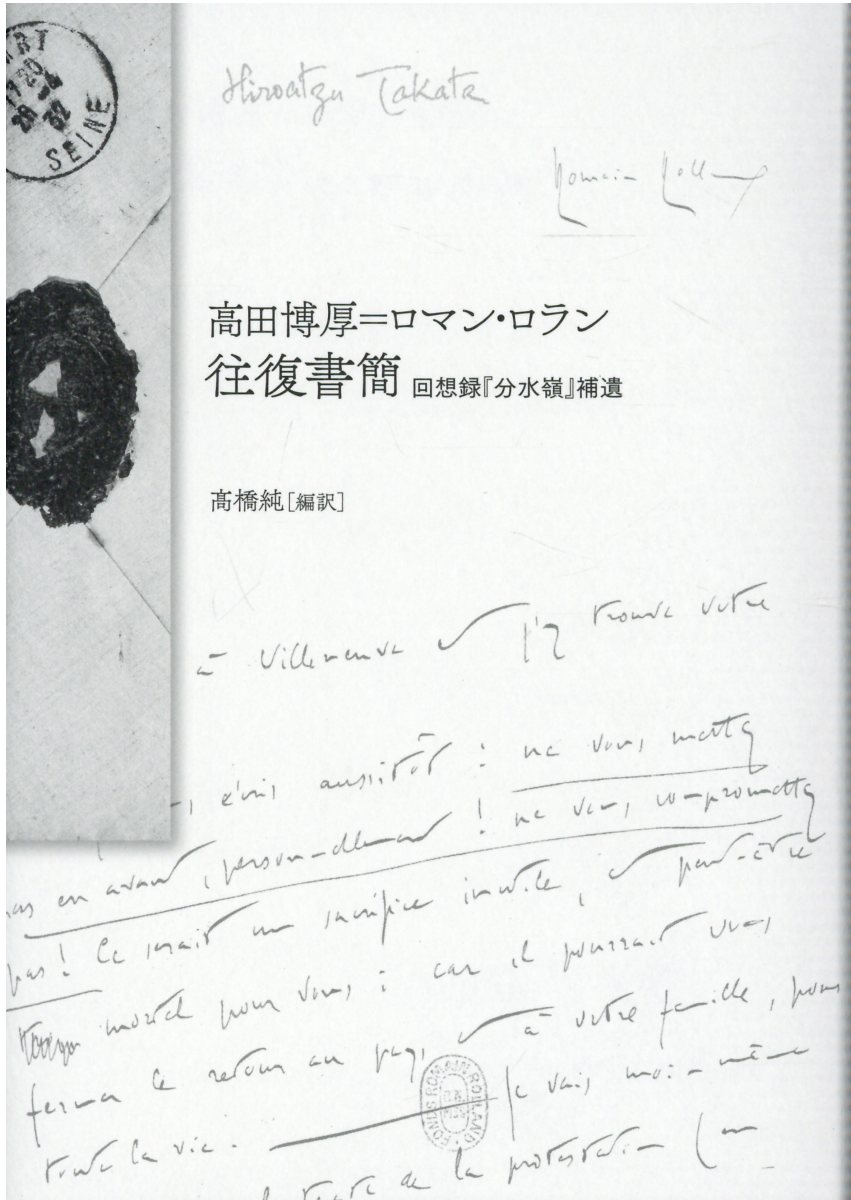 RY
17 20
28
32
SEINE
Hiroatzu Takata
Romain Rolland
高田博厚=ロマン・ロラン
往復書簡 回想録『分水嶺』補遺
髙橋純[編訳]
à Villeneuve et j'y trouve votre
écris aussitôt : ne vous mettez
pas en avant, personnellement ! ne vous compromettez
pas ! Ce serait un sacrifice inutile, et peut-être
mortel pour vous : car il pourrait vous
fermer le retour au pays, et à votre famille, pour
toute la vie. — Je vais moi-même
de la protestation (
FONDS ROMAIN ROLLAND